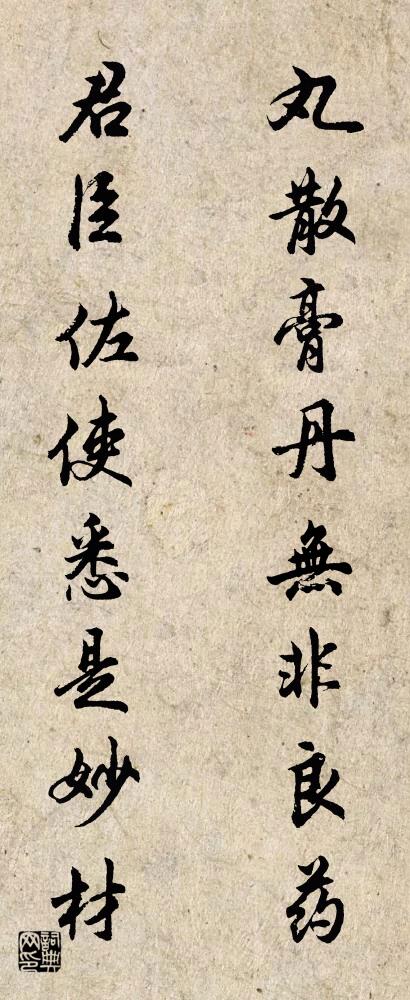 丸散膏丹無非良药
君臣佐使悉是妙材
詞典网印